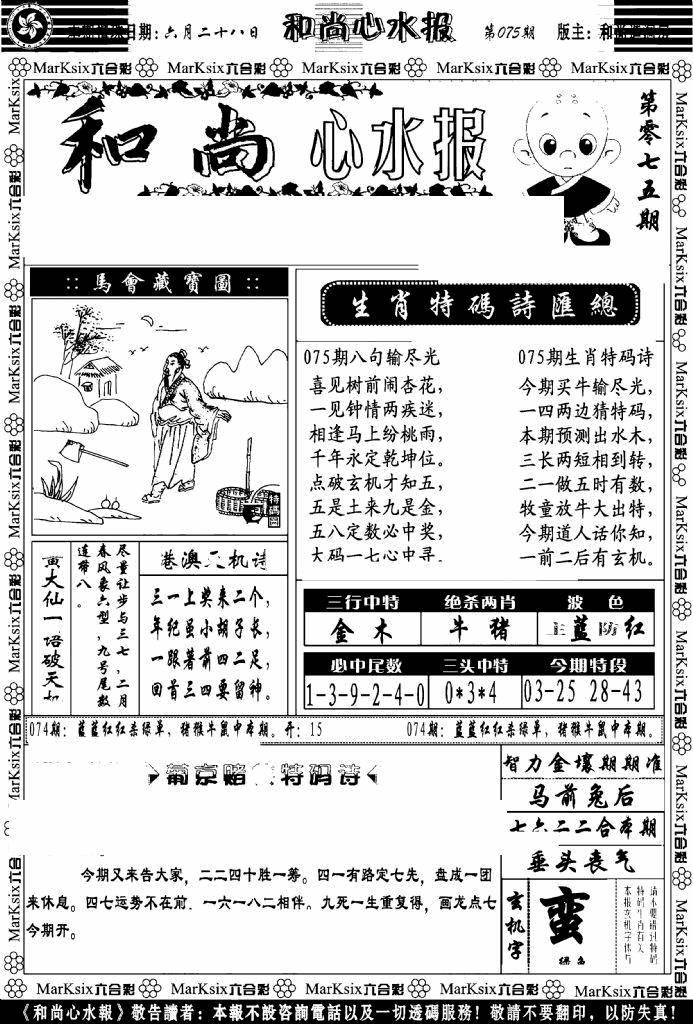 日期:六月二十八日
和尚心水报
第075期
版主:和
MarKsix六合彩 MarKsix六合彩 MarKsix六合彩 MarKsix六合彩 MarKsix六合彩
和尚心水报
第零七五期
::馬會藏寶圖::
生肖特碼詩匯總
075期八句输尽光
喜见树前闹杏花,
一见钟情两疾迷,
相逢马上纷桃雨,
千年永定乾坤位。
点破玄机才知五,
五是土来九是金,
五八定数必中奖,
大码一七心中寻
075期生肖特码诗
今期买牛输尽光,
一四两边猜特码,
本期预测出水木,
三长两短相到转,
二一做五时有数,
牧童放牛大出特,
今期道人话你知,
一前二后有玄机。
黄大仙一语破天机
尽量让步与三七,二月
春风象六型,九号尾数
连带八。
港澳天机诗
三一上奖来二个,
年纪虽小胡子长,
一跟著前四二足,
回首三四要留神。
三行中特 绝杀两肖 波色
金木 牛猪 主蓝防红
必中尾数 三头中特 今期特段
1-3-9-2-4-0 0*3*4 03-25 28-43
074期:蓝蓝红红杀绿单,猪猴牛鼠中本期。开:15
074期:蓝蓝红红杀绿单,猪猴牛鼠中本期。
葡京赌 特码诗
今期又来告大家,二二四十胜一筹。四一有路定七先,盘成一团
来休息。四七运势不在前,一六一八二相伴。九死一生重复得,画龙点七
今期开。
智力金壤期期准
马前兔后
七六二二合本期
垂头丧气
玄机字
蛮
绿鱼
MarKsix六合彩 MarKsix六合彩 MarKsix六合彩 MarKsix六合彩 MarKsix六合彩
《和尚心水報》敬告讀者:本報不設咨詢電話以及一切透碼服務!敬請不要翻印,以防失真!